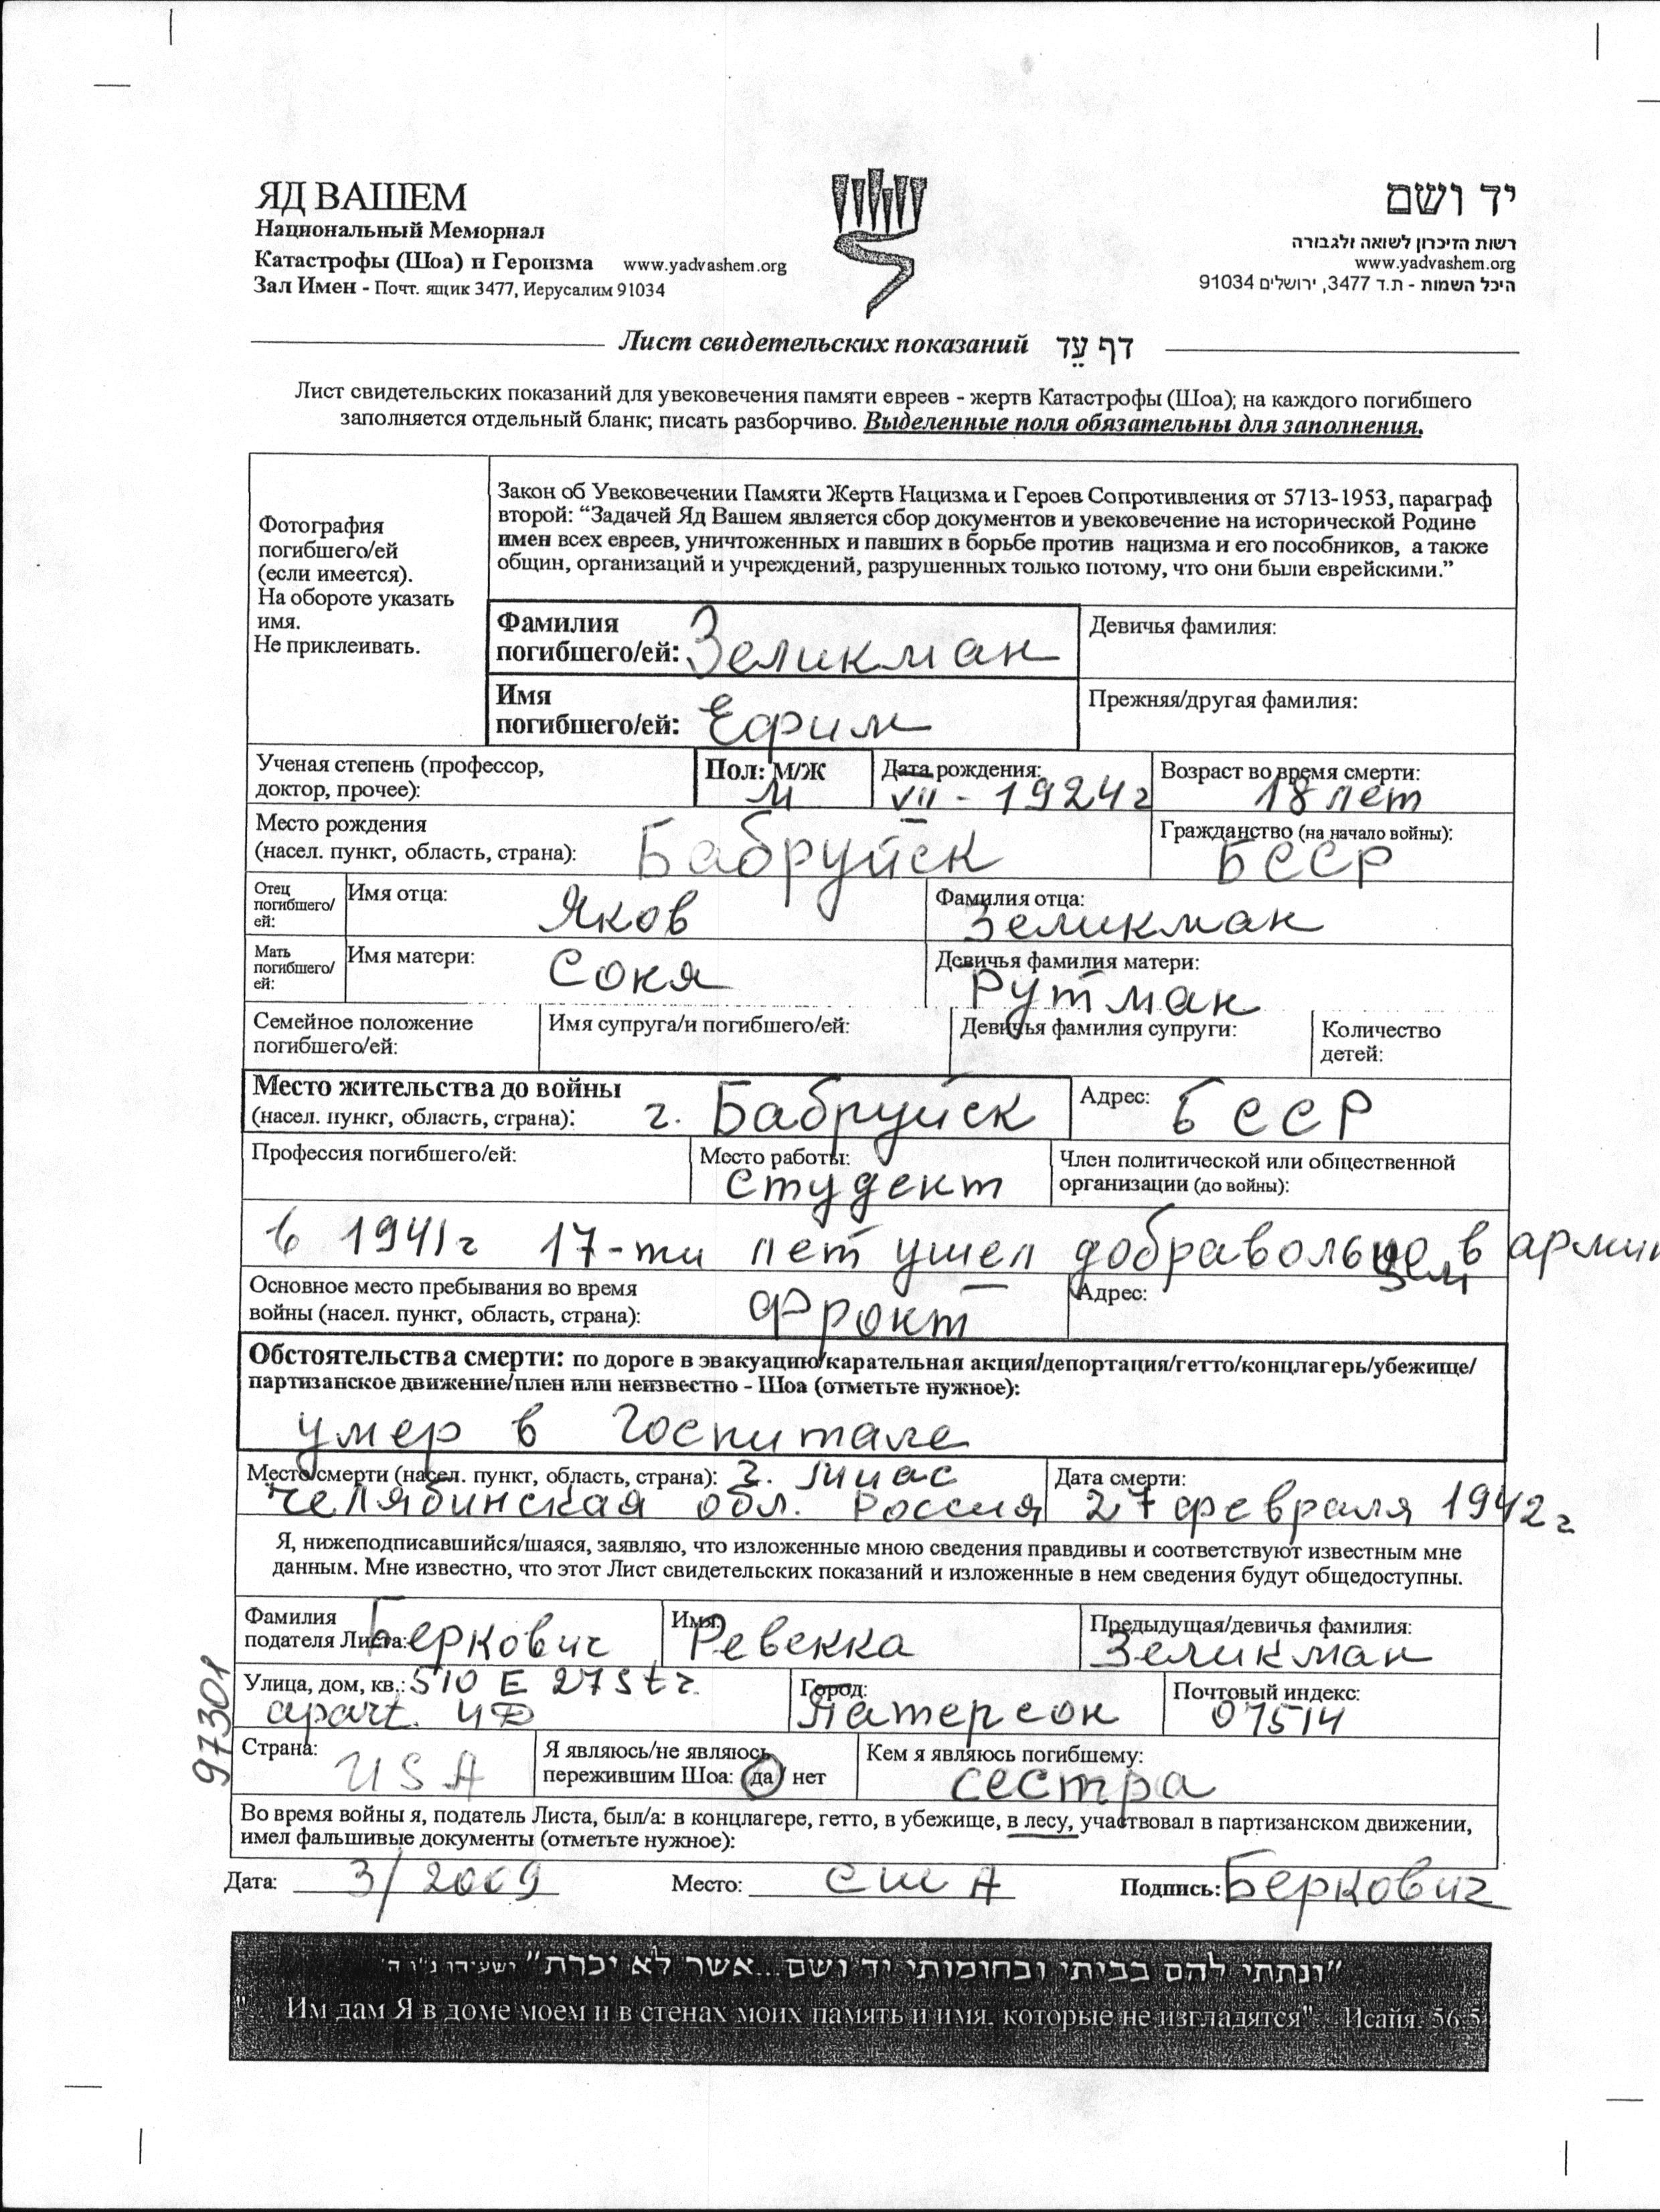 ЯД ВАШЕМ
Национальный Мемориал
Катастрофы (Шоа) и Героизма www.yadvashem.org
Зал Имен - Почт. ящик 3477, Иерусалим 91034
יד ושם
רשות הזיכרון לשואה ולגבורה
www.yadvashem.org
היכל השמות - ת.ד 3477, ירושלים 91034
Лист свидетельских показаний דף עֵד
Лист свидетельских показаний для увековечения памяти евреев - жертв Катастрофы (Шоа); на каждого погибшего
заполняется отдельный бланк; писать разборчиво. Выделенные поля обязательны для заполнения.
Фотография
погибшего/ей
(если имеется).
На обороте указать
имя.
Не приклеивать.
Закон об Увековечении Памяти Жертв Нацизма и Героев Сопротивления от 5713-1953, параграф
второй: “Задачей Яд Вашем является сбор документов и увековечение на исторической Родине
имен всех евреев, уничтоженных и павших в борьбе против нацизма и его пособников, а также
общин, организаций и учреждений, разрушенных только потому, что они были еврейскими.”
Фамилия
погибшего/ей: Зеликман
Девичья фамилия:
Имя
погибшего/ей: Ефим
Прежняя/другая фамилия:
Ученая степень (профессор,
доктор, прочее):
Пол: М/Ж
М
Дата рождения:
VII - 1924 г
Возраст во время смерти:
18 лет
Место рождения
(насел. пункт, область, страна): Бабруйск
Гражданство (на начало войны):
БССР
Отец
погибшего/
ей:
Имя отца: Яков
Фамилия отца:
Зеликман
Мать
погибшего/
ей:
Имя матери: Соня
Девичья фамилия матери:
Рутман
Семейное положение
погибшего/ей:
Имя супруга/и погибшего/ей:
Девичья фамилия супруги:
Количество
детей:
Место жительства до войны
(насел. пункт, область, страна): г. Бабруйск
Адрес: БССР
Профессия погибшего/ей:
Место работы:
Студент
Член политической или общественной
организации (до войны):
в 1941г 17-ти лет ушел добравольцем в арми
Основное место пребывания во время
войны (насел. пункт, область, страна): Фронт
Адрес:
Обстоятельства смерти: по дороге в эвакуацию/карательная акция/депортация/гетто/концлагерь/убежище/
партизанское движение/плен или неизвестно - Шоа (отметьте нужное):
умер в Госпитале
Место смерти (насел. пункт, область, страна): г. Миас
Челябинская обл. Россия
Дата смерти:
27 февраля 1942 г
Я, нижеподписавшийся/шаяся, заявляю, что изложенные мною сведения правдивы и соответствуют известным мне
данным. Мне известно, что этот Лист свидетельских показаний и изложенные в нем сведения будут общедоступны.
Фамилия
подателя Листа: Беркович
Имя:
Ревекка
Предыдущая/девичья фамилия:
Зеликман
Улица, дом, кв.: 510 E 27 Str.
apart. 4D
Город:
Патерсон
Почтовый индекс:
07514
97301
Страна: USA
Я являюсь/не являюсь
пережившим Шоа: да / нет
Кем я являюсь погибшему:
сестра
Во время войны я, податель Листа, был/а: в концлагере, гетто, в убежище, в лесу, участвовал в партизанском движении,
имел фальшивые документы (отметьте нужное):
Дата: 3/2009 Место: США Подпись: Беркович
"ונתתי להם בביתי ובחומותי יד ושם...אשר לא יכרת" ישעיהו נ"ו ה'
"... Им дам Я в доме моем и в стенах моих память и имя, которые не изгладятся" - Исайя. 56:5